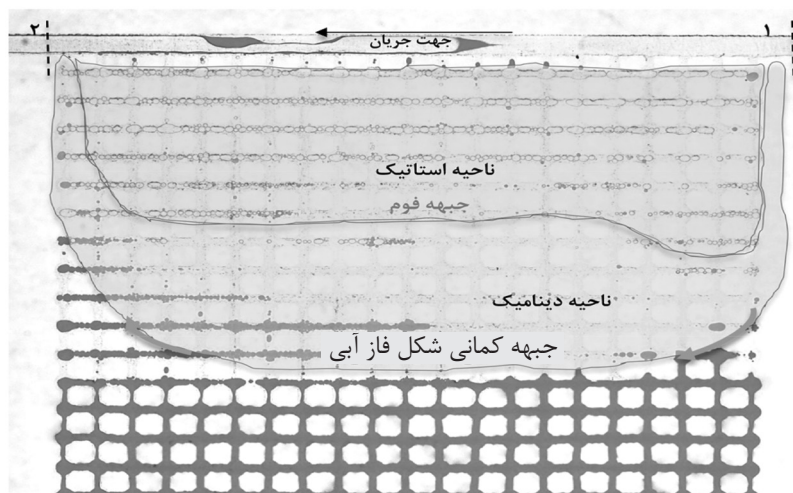 ۱
جهت جریان
۲
ناحیه استاتیک
جبهه فوم
ناحیه دینامیک
جبهه کمانی شکل فاز آبی